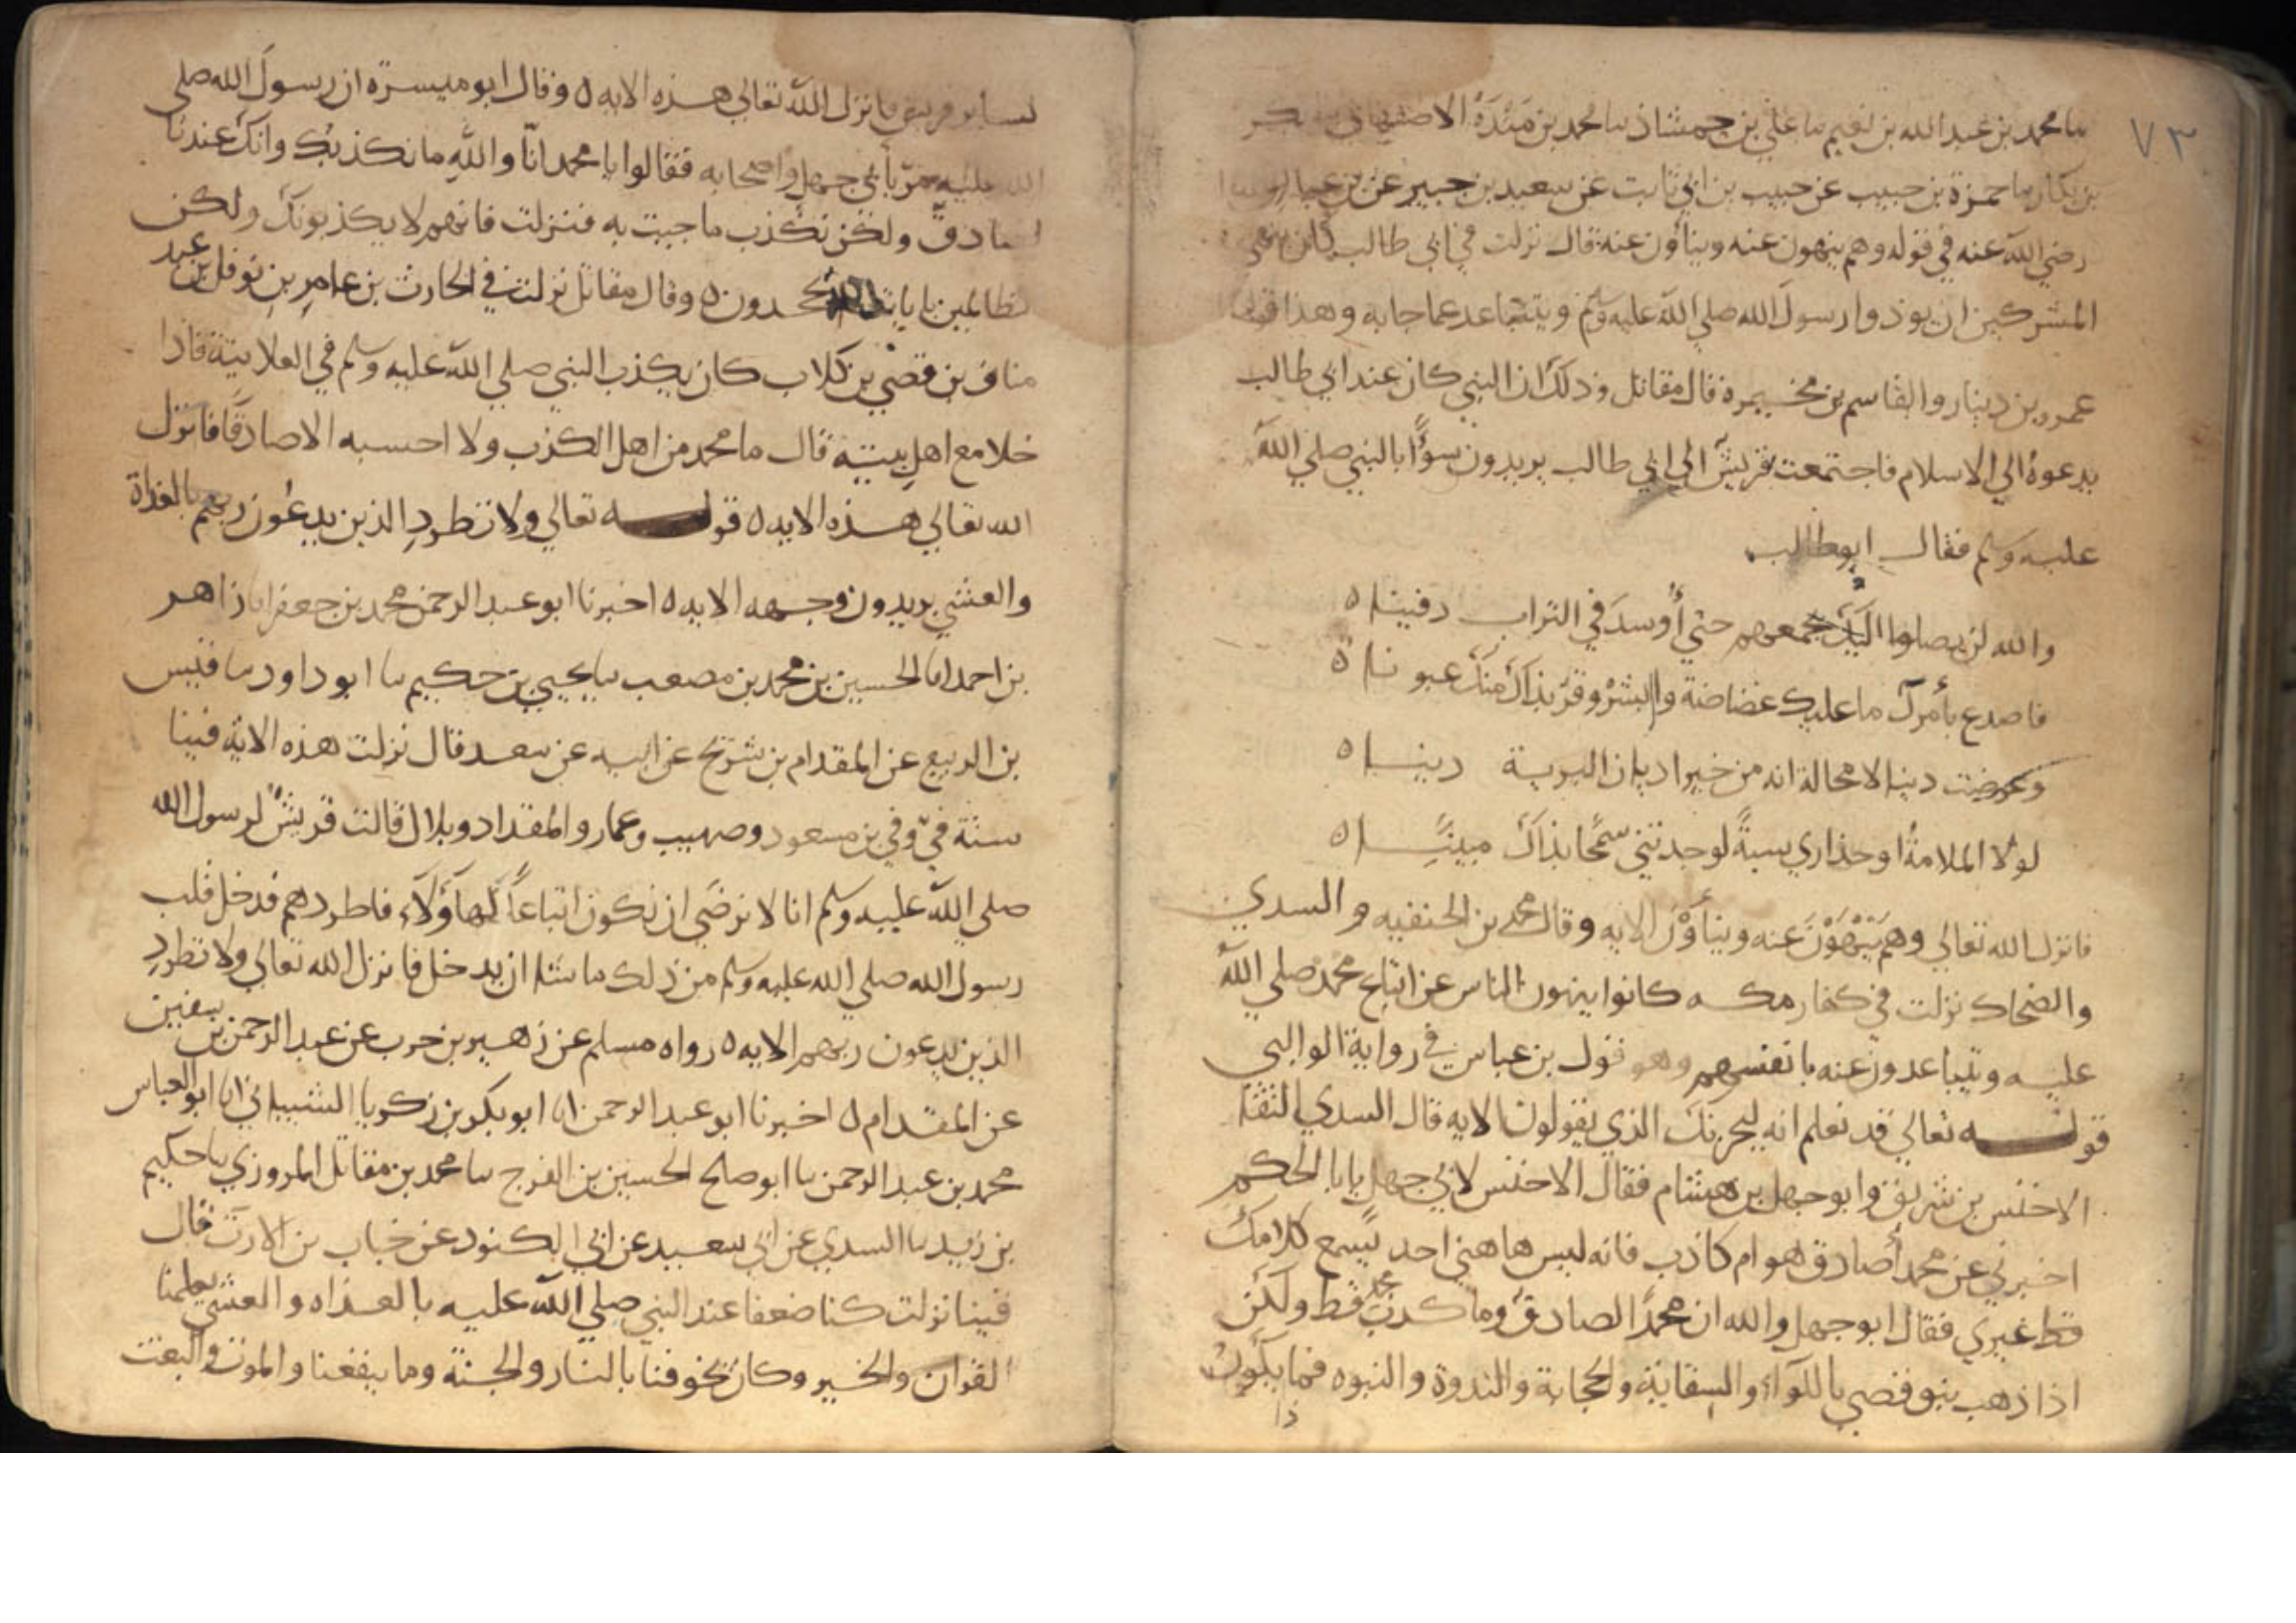 ٧٣
ثنا محمد بن عبد الله بن نعيم ثنا علي بن حمشاذ ثنا محمد بن مندة الاصفهاني ثنا بكر
بن بكار ثنا حمزة بن حبيب عن حبيب بن ابي ثابت عن سعيد بن جبير عن بن عباس
رضي الله عنه في قوله وهم ينهون عنه وينأون عنه قال نزلت في ابي طالب كان ينهى
المشركين ان يوذوا رسول الله صلي الله عليه وسلم ويتباعد عما جا به وهذا قول
عمرو بن دينار والقاسم بن مخيمرة قال مقاتل وذلك ان النبي كان عند ابي طالب
يدعوه الي الاسلام فاجتمعت قريش الي ابي طالب يريدون سوًا بالنبي صلي الله
عليه وسلم فقال ابو طالب
والله لن يصلوا اليك بجمعهم حتي أُوسدَ في التراب دفينا ٥
فاصدع بأمرك ما عليك غضاضة وابشر وقر بذاك منك عيونا ٥
وعرضت دينا لا محالة انه من خير اديان البرية دينا ٥
لولا الملامةُ او حذاري سبةً لوجدتني سمحًا بذاك مبينًا ٥
فانزل الله تعالي وهم يَنْهَوْنَ عنه وينأَوْنَ الايه وقال محمد بن الحنفيه والسدي
والضحاك نزلت في كفار مكه كانوا ينهون الناس عن اتباع محمد صلي الله
عليه ويتباعدون عنه بانفسهم وهو قول بن عباس في رواية الوالبي
قوله تعالي قد نعلم انه ليحزنك الذي يقولون الايه قال السدي التقا
الاخنس بن شريق وابو جهل بن هشام فقال الاخنس لابي جهل يابا الحكم
اخبرني عن محمد أصادق هو ام كاذب فانه ليس هاهنى احد يسمع كلامك
غيري فقال ابو جهل والله ان محمدًا لصادق وما كذب محمد قط ولكن
اذا ذهب بنو قصي باللوآء والسقاية والحجابة والندوة والنبوه فما يكون
لساير قريش فانزل الله تعالي هذه الايه ٥ وقال ابو ميسرة ان رسول الله صلي
الله عليه مر بأبي جهل واصحابه فقالوا يا محمد انّا والله ما نكذبك وانك عندنا
لصادق ولكن نكذب ما جيت به فنزلت فانهم لا يكذبونك ولكن
الظالمين بايات الله يجحدون ٥ وقال مقاتل نزلت في الحارث بن عامر بن نوفل بن عبد
مناف بن قصي بن كلاب كان يكذب النبي صلي الله عليه وسلم في العلانية فاذا
خلا مع اهل بيته قال ما محمد من اهل الكذب ولا احسبه الا صادقًا فانزل
الله تعالي هذه الايه ٥ قوله تعالي ولا تطرد الذين يدعون ربهم بالغداة
والعشي يريدون وجهه الايه ٥ اخبرنا ابو عبد الرحمن محمد بن جعفر انا زاهر
بن احمد انا الحسين بن محمد بن مصعب ثنا يحيي بن حكيم ثنا ابو داود ثنا قيس
بن الربيع عن المقدام بن شريح عن ابيه عن سعد قال نزلت هذه الاية فينا
ستة فيّ وفي بن مسعود وصهيب وعمار والمقداد وبلال قالت قريش لرسول الله
صلي الله عليه وسلم انا لا نرضي ان نكون اتباعًا لهاؤلآء فاطردهم فدخل قلب
رسول الله صلي الله عليه وسلم من ذلك ما شا ان يدخل فانزل الله تعالي ولا تطرد
الذين يدعون ربهم الايه ٥ رواه مسلم عن زهير بن حرب عن عبد الرحمن بن سفين
عن المقدام ٥ اخبرنا ابو عبد الرحمن انا ابو بكر بن زكريا الشيباني انا ابو العباس
محمد بن عبد الرحمن ثنا ابو صالح الحسين بن الفرج ثنا محمد بن مقاتل المروزي ثنا حكيم
بن زيد ثنا السدي عن ابي سعيد عن ابي الكنود عن خباب بن الارت قال
فينا نزلت كنا ضعفا عند النبي صلي الله عليه بالغداه والعشي يعلمنا
القران والخير وكان يخوفنا بالنار والجنة وما ينفعنا والموت والبعث